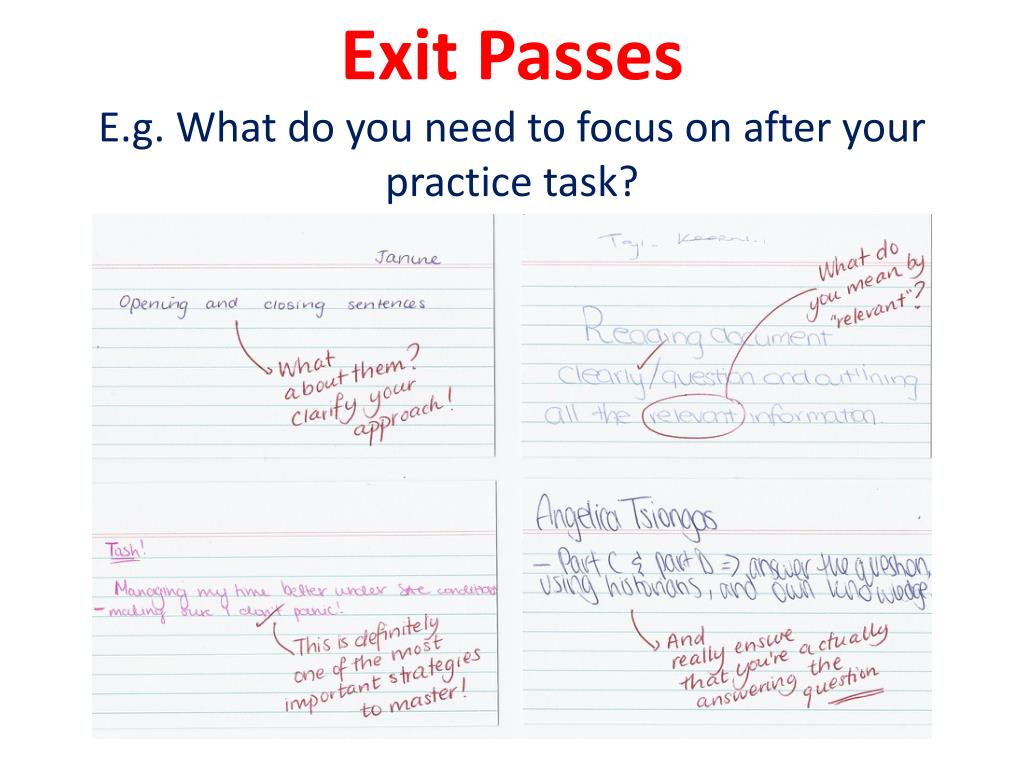 Exit Passes
E.g. What do you need to focus on after your
practice task?
Janine
Opening and closing sentences
What
about them?
clarify your
approach!
What do
you mean by
"relevant"?
Reading document
clearly/question and outlining
all the relevant information.
Tash!
Managing my time better under SAC conditions
- making sure I don't panic!
This is definitely
one of the most
important strategies
to master!
Angelica Tsiongos
- Part C & part D => answer the question,
using historians, and own knowledge.
And
really ensure
that you're actually
answering the
question